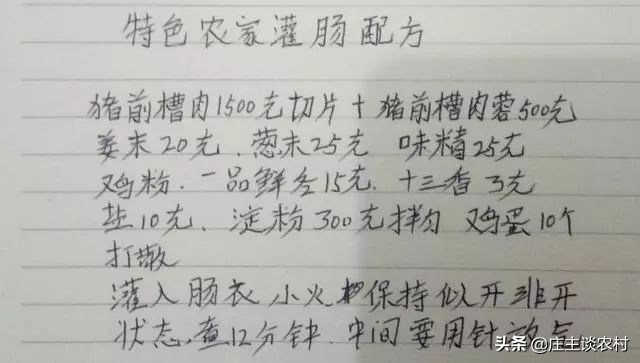 特色农家灌肠配方
猪前槽肉1500克切片+猪前槽肉蓉500克
姜末20克、葱末25克 味精25克
鸡粉、一品鲜各15克、十三香3克
盐10克、淀粉300克拌匀 鸡蛋10个
打散
灌入肠衣 小火 保持似开非开
状态,煮12分钟、中间要用针
头条@庄主谈农村